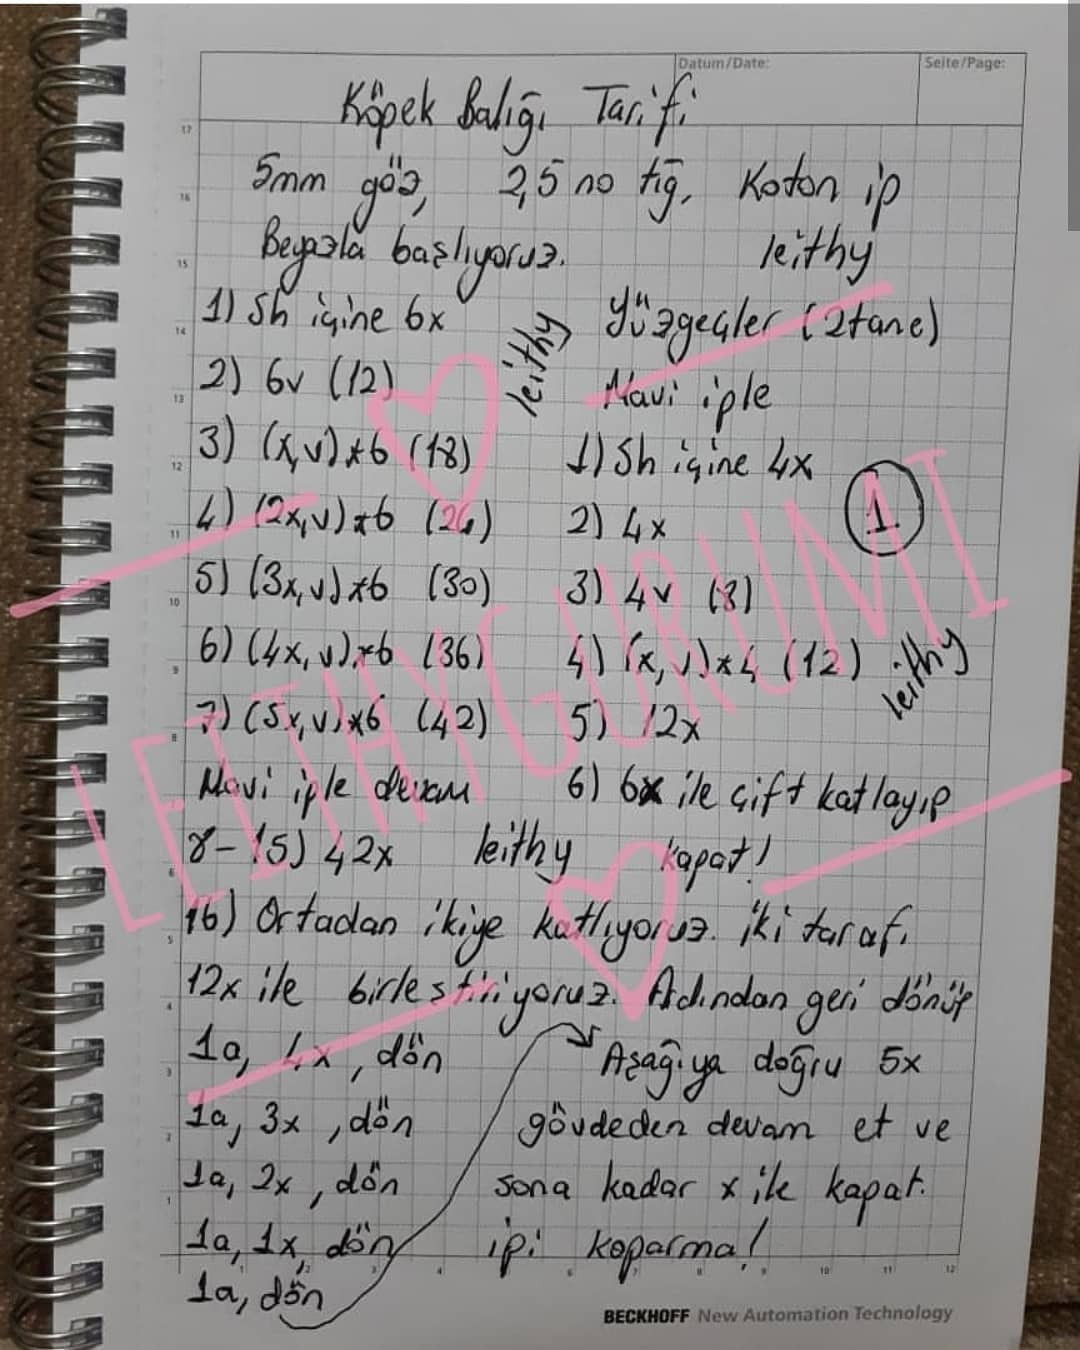 Datum/Date: Seite/Page:
Köpek Balığı Tarifi
5mm göz, 2,5 no tığ, Koton ip
Beyazla başlıyoruz. leithy
1) Sh içine 6x
2) 6v (12)
3) (x,v)*6 (18)
4) (2x,v)*6 (24)
5) (3x,v)*6 (30)
6) (4x,v)*6 (36)
7) (5x,v)*6 (42)
Mavi iple devam
8-15) 42x leithy
leithy
Yüzgeçler (2tane)
Mavi iple
1) Sh içine 4x
1
2) 4x
3) 4v (8)
4) (x,v)*4 (12)
leithy
5) 12x
6) 6x ile çift katlayıp
kapat!
16) Ortadan ikiye katlıyoruz. İki tarafı
12x ile birleştiriyoruz. Ardından geri dönüp
1a, 4x, dön
1a, 3x, dön
1a, 2x, dön
1a, 1x, dön
1a, dön
Aşağıya doğru 5x
gövdeden devam et ve
sona kadar x ile kapat.
ipi koparma!
LEITHYGURUMI
17
16
15
14
13
12
11
10
9
8
6
5
4
3
2
1
1 2 3 4 6 7 8 9 10 11 12
BECKHOFF New Automation Technology